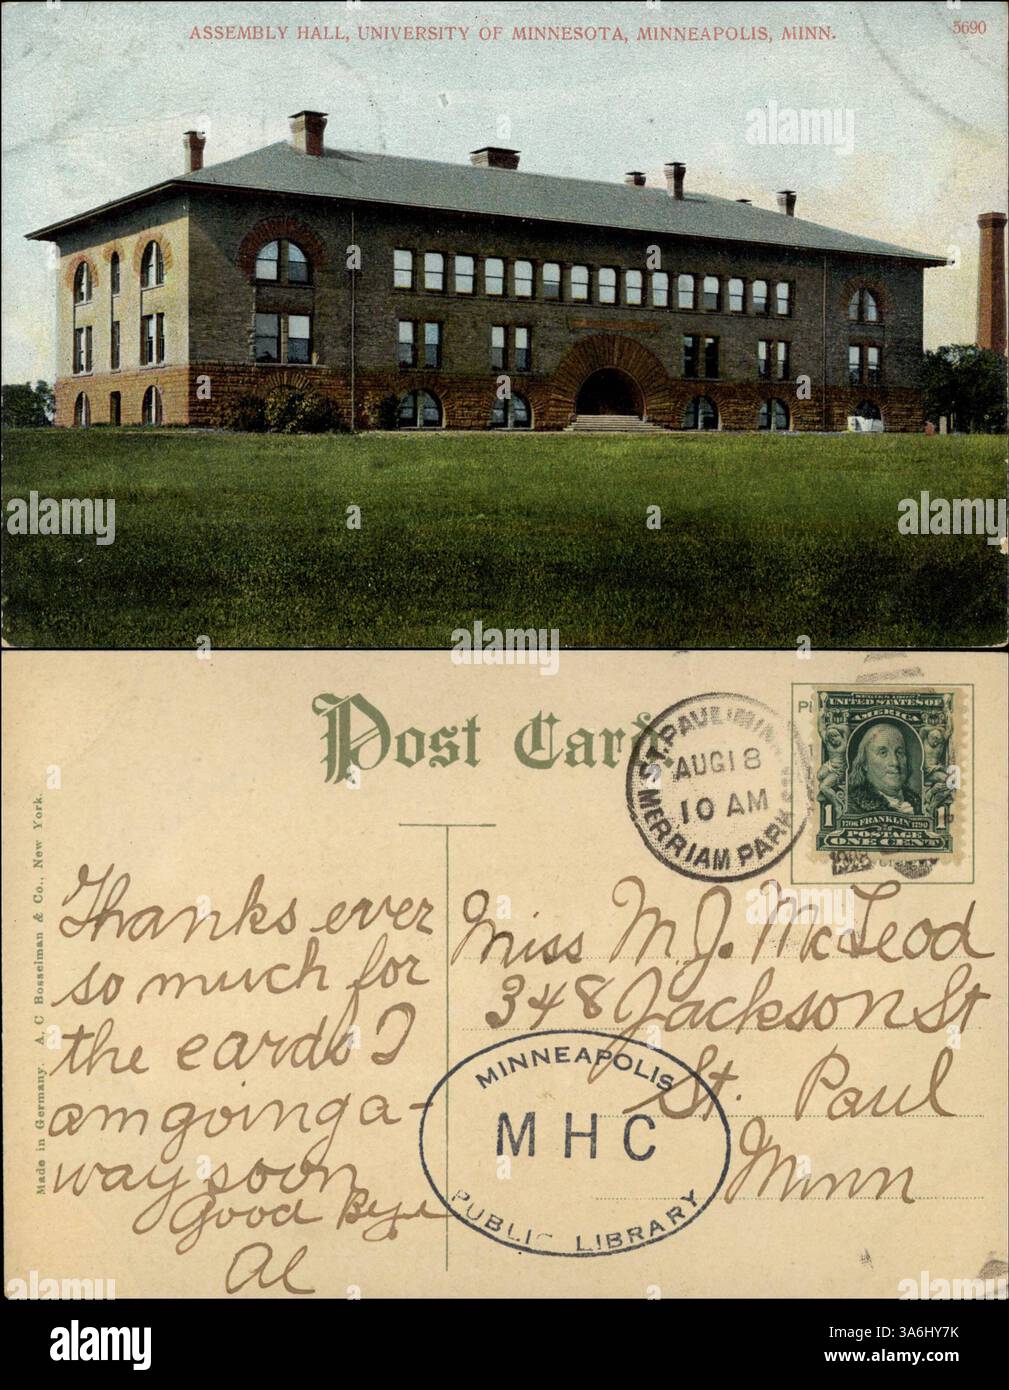 ASSEMBLY HALL, UNIVERSITY OF MINNESOTA, MINNEAPOLIS, MINN.
5690
Post Card
ST. PAUL, MINN.
AUG 18
10 AM
MERRIAM PARK
UNITED STATES OF
AMERICA
1706 FRANKLIN 1790
POSTAGE
1 ONE CENT 1
Made in Germany. A. C. Bosselman & Co., New York.
Thanks ever
so much for
the cards I
am going a-
way soon
Good Bye
Al
Miss M. J. McLeod
348 Jackson St
St. Paul
Minn
MINNEAPOLIS
MHC
PUBLIC LIBRARY
alamy
Image ID: 3A6HY7K
www.alamy.com